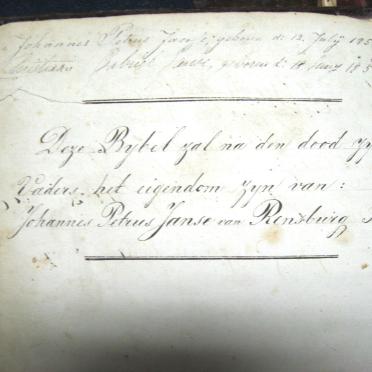 Johannes Petrus Janse, geboren d: 12 July 185
Gabriel geboren d: 18
Deze Bybel zal na den dood zy
Vaders het eigendom zyn van:
Johannes Petrus Janse van Rensburg